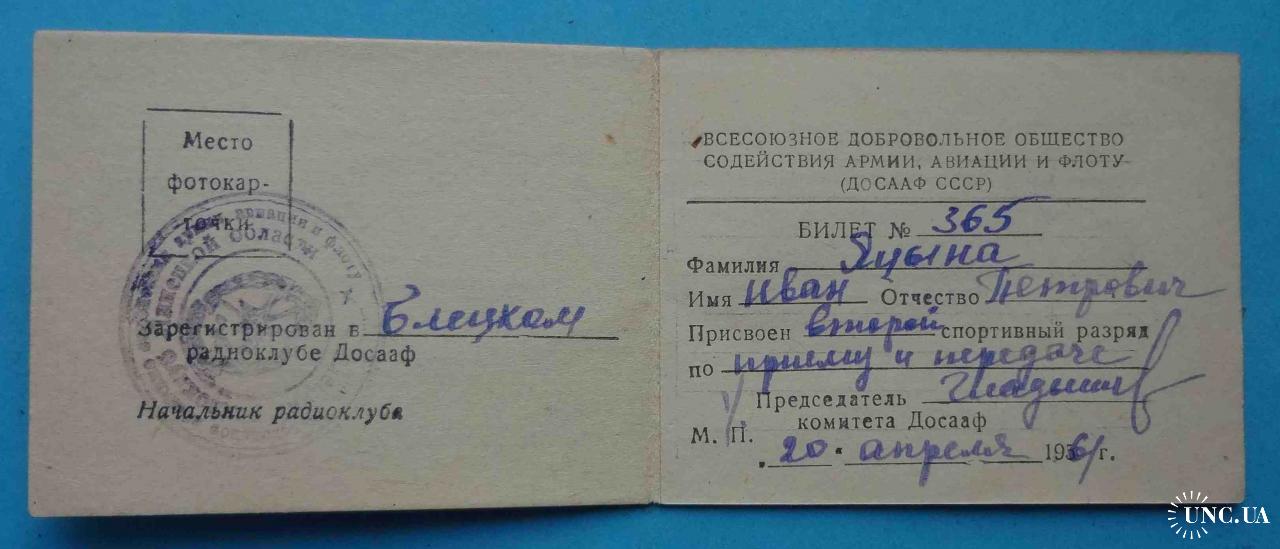 Место
фотокар-
точки
Зарегистрирован в
радиоклубе Досааф
Начальник радиоклуба
авиации и флоту
ской области
ВСЕСОЮЗНОЕ ДОБРОВОЛЬНОЕ ОБЩЕСТВО
СОДЕЙСТВИЯ АРМИИ, АВИАЦИИ И ФЛОТУ
(ДОСААФ СССР)
БИЛЕТ № 365
Фамилия Яцына
Имя Иван Отчество Петрович
Присвоен второй спортивный разряд
по приему и передаче
Председатель
комитета Досааф
М. П.
20 апреля 1961 г.
UNC.UA